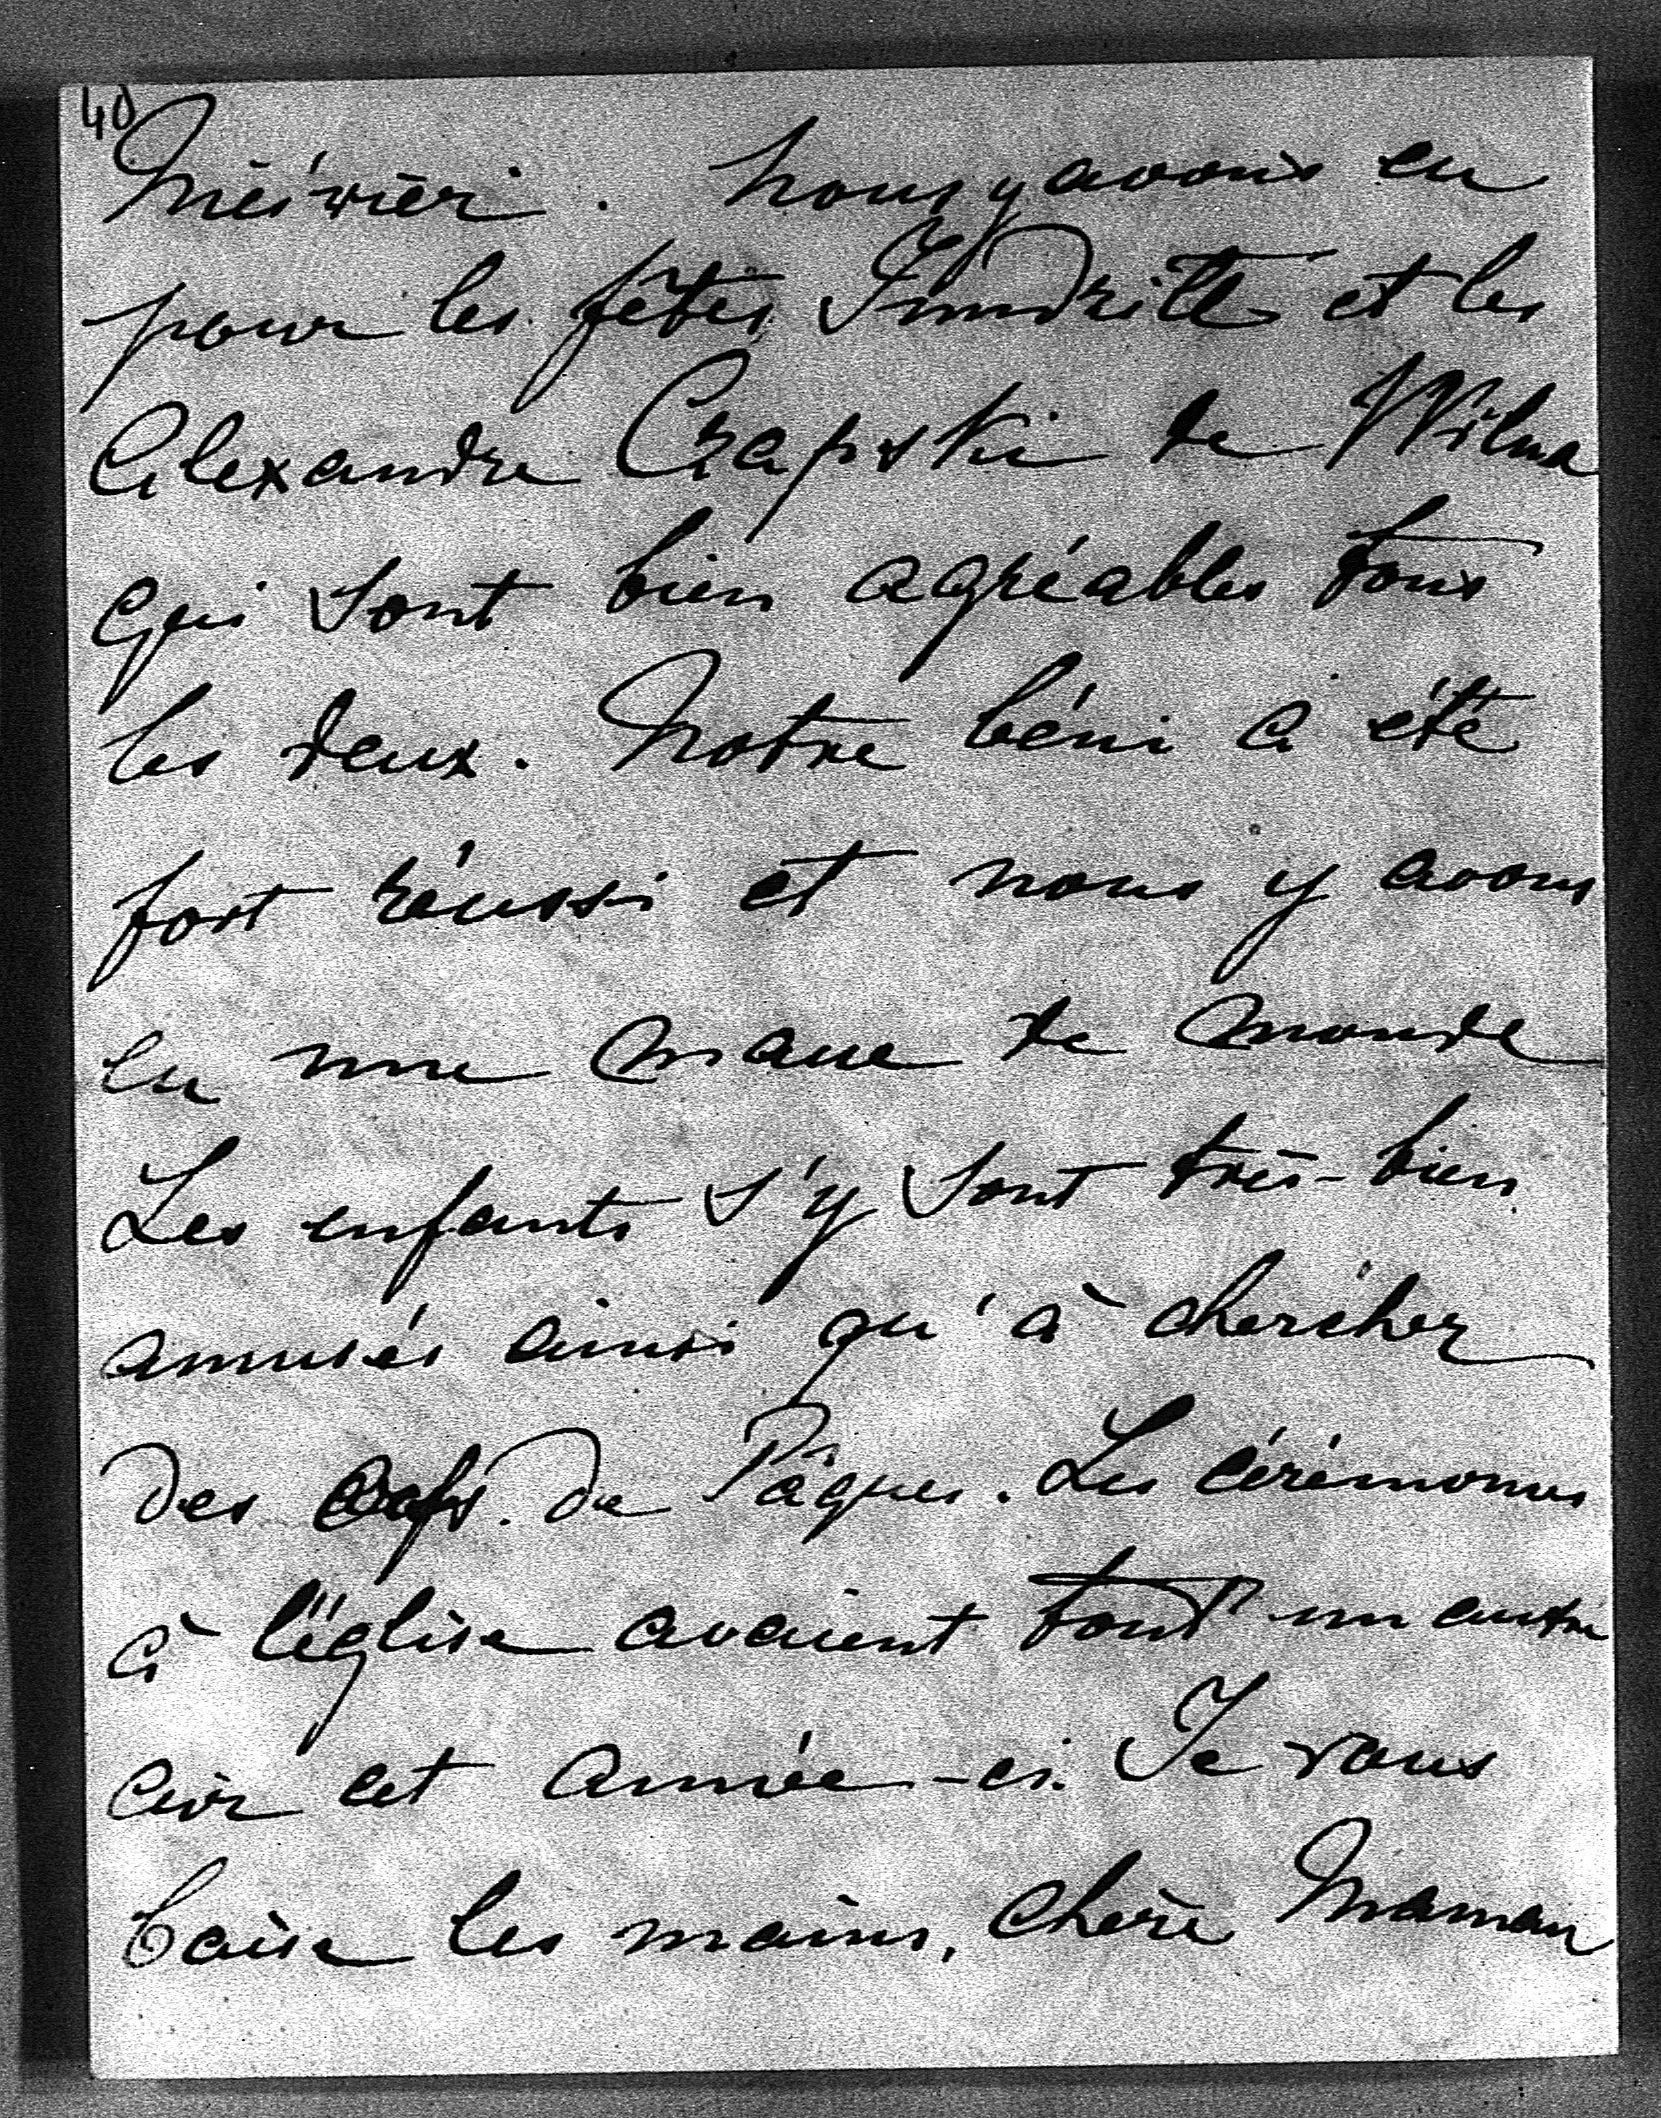 40
Niéśwież. Nous y avons eu
pour les fêtes Jundzill et les
Alexandre Czapski de Wilna
qui sont bien agréables tous
les deux. Notre béni a été
fort réussi et nous y avons
eu une masse de monde
Les enfants s'y sont très-bien
amusés ainsi qu'à chercher
des œufs de Pâques. Les cérémonies
à l'église avaient tout un autre
air cet année-ci. Je vous
baise les mains, chère Maman